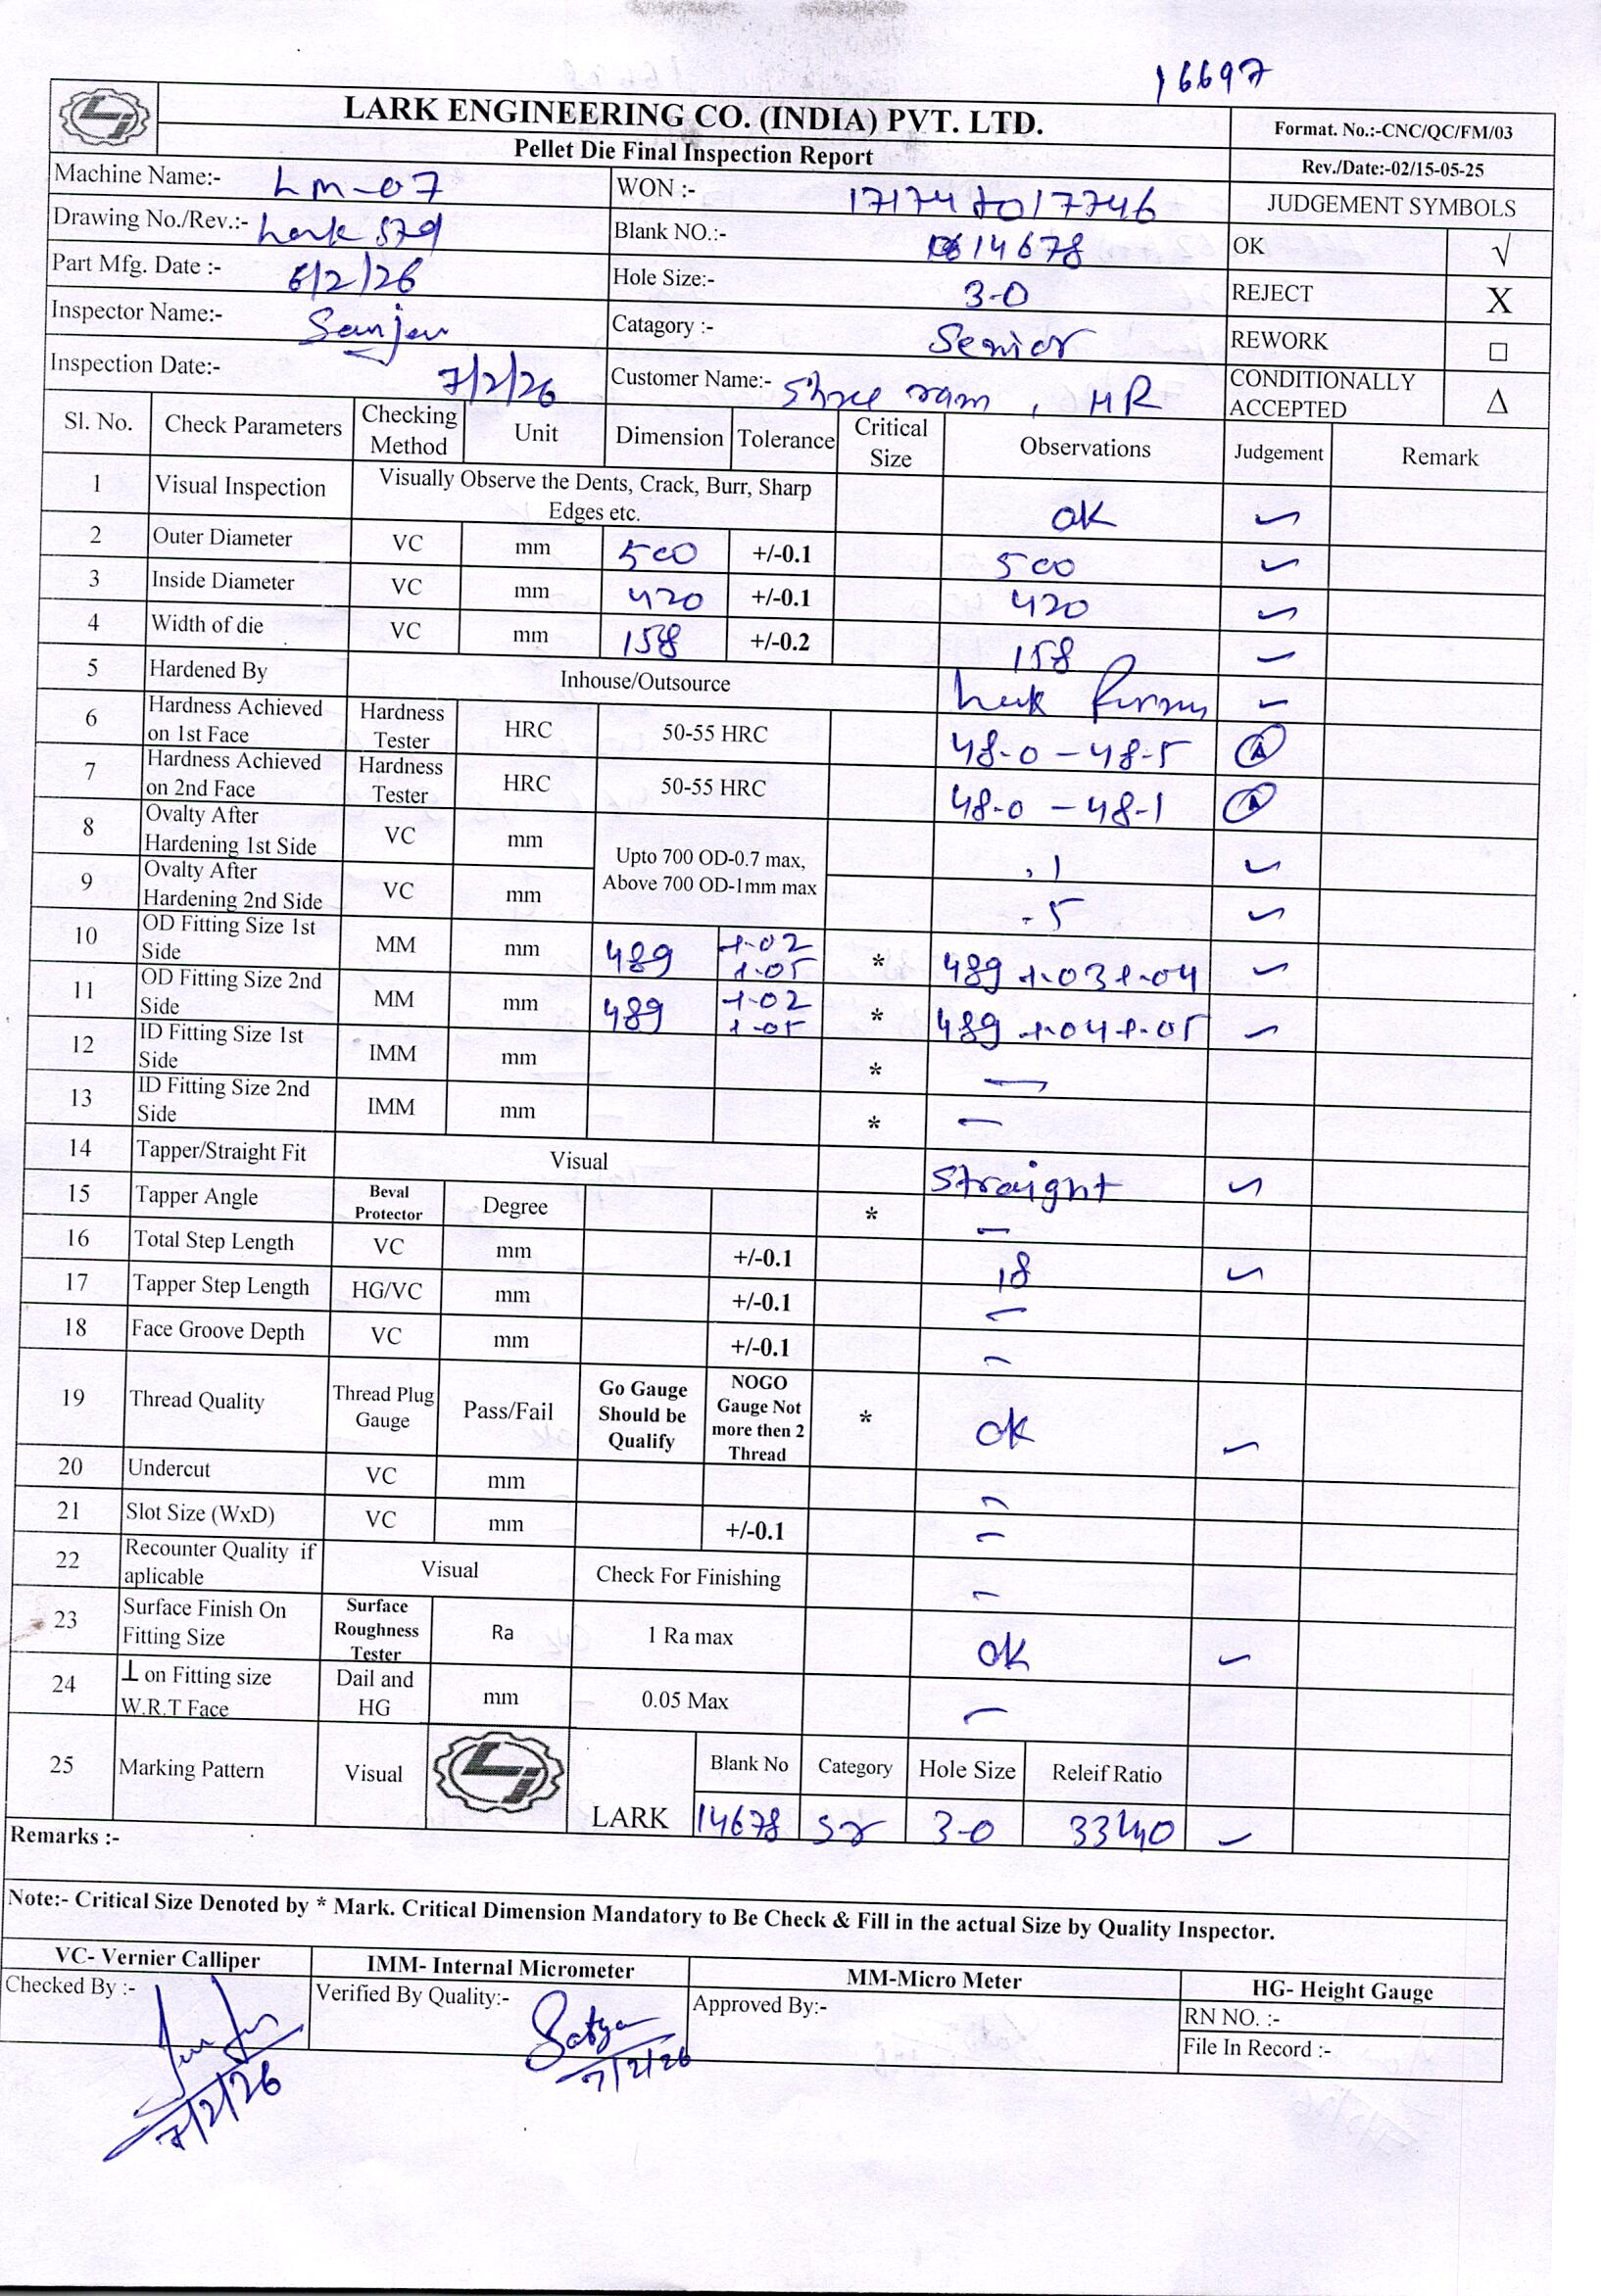 16697
LARK ENGINEERING CO. (INDIA) PVT. LTD.
Format. No.:-CNC/QC/FM/03
Pellet Die Final Inspection Report
Rev./Date:-02/15-05-25
Machine Name:- LM-07 WON :- JUDGEMENT SYMBOLS
Drawing No./Rev.:- Lark 579 Blank NO.:- 14678 OK √
Part Mfg. Date :- 6/2/26 Hole Size:- 3-0 REJECT X
Inspector Name:- Catagory :- Senior REWORK □
Inspection Date:- 7/2/26 Customer Name:- Shree ram, HR CONDITIONALLY ACCEPTED Δ
Sl. No. Check Parameters Checking Method Unit Dimension Tolerance Critical Size Observations Judgement Remark
1 Visual Inspection Visually Observe the Dents, Crack, Burr, Sharp Edges etc. ok ✓
2 Outer Diameter VC mm 500 +/-0.1 500 ✓
3 Inside Diameter VC mm 420 +/-0.1 420 ✓
4 Width of die VC mm 158 +/-0.2 158 ✓
5 Hardened By Inhouse/Outsource ✓
6 Hardness Achieved on 1st Face Hardness Tester HRC 50-55 HRC 48-0 - 48-5
7 Hardness Achieved on 2nd Face Hardness Tester HRC 50-55 HRC 48-0 - 48-1
8 Ovalty After Hardening 1st Side VC mm Upto 700 OD-0.7 max, Above 700 OD-1mm max .1 ✓
9 Ovalty After Hardening 2nd Side VC mm .5 ✓
10 OD Fitting Size 1st Side MM mm 489 +.02 +.05 * 489 +.03 +.04 ✓
11 OD Fitting Size 2nd Side MM mm 489 +.02 +.05 * 489 +.04 +.05 ✓
12 ID Fitting Size 1st Side IMM mm * —
13 ID Fitting Size 2nd Side IMM mm * —
14 Tapper/Straight Fit Visual Straight ✓
15 Tapper Angle Beval Protector Degree * —
16 Total Step Length VC mm +/-0.1 18 ✓
17 Tapper Step Length HG/VC mm +/-0.1 —
18 Face Groove Depth VC mm +/-0.1 —
19 Thread Quality Thread Plug Gauge Pass/Fail Go Gauge Should be Qualify NOGO Gauge Not more then 2 Thread * ok ✓
20 Undercut VC mm —
21 Slot Size (WxD) VC mm +/-0.1 —
22 Recounter Quality if aplicable Visual Check For Finishing —
23 Surface Finish On Fitting Size Surface Roughness Tester Ra 1 Ra max ok ✓
24 ⊥ on Fitting size W.R.T Face Dail and HG mm 0.05 Max —
25 Marking Pattern Visual LARK Blank No Category Hole Size Releif Ratio
14678 Sr 3-0 ✓
Remarks :-
Note:- Critical Size Denoted by * Mark. Critical Dimension Mandatory to Be Check & Fill in the actual Size by Quality Inspector.
VC- Vernier Calliper IMM- Internal Micrometer MM-Micro Meter HG- Height Gauge
Checked By :- Verified By Quality:- Satya Approved By:- RN NO. :-
File In Record :-
7/2/26 7/2/26